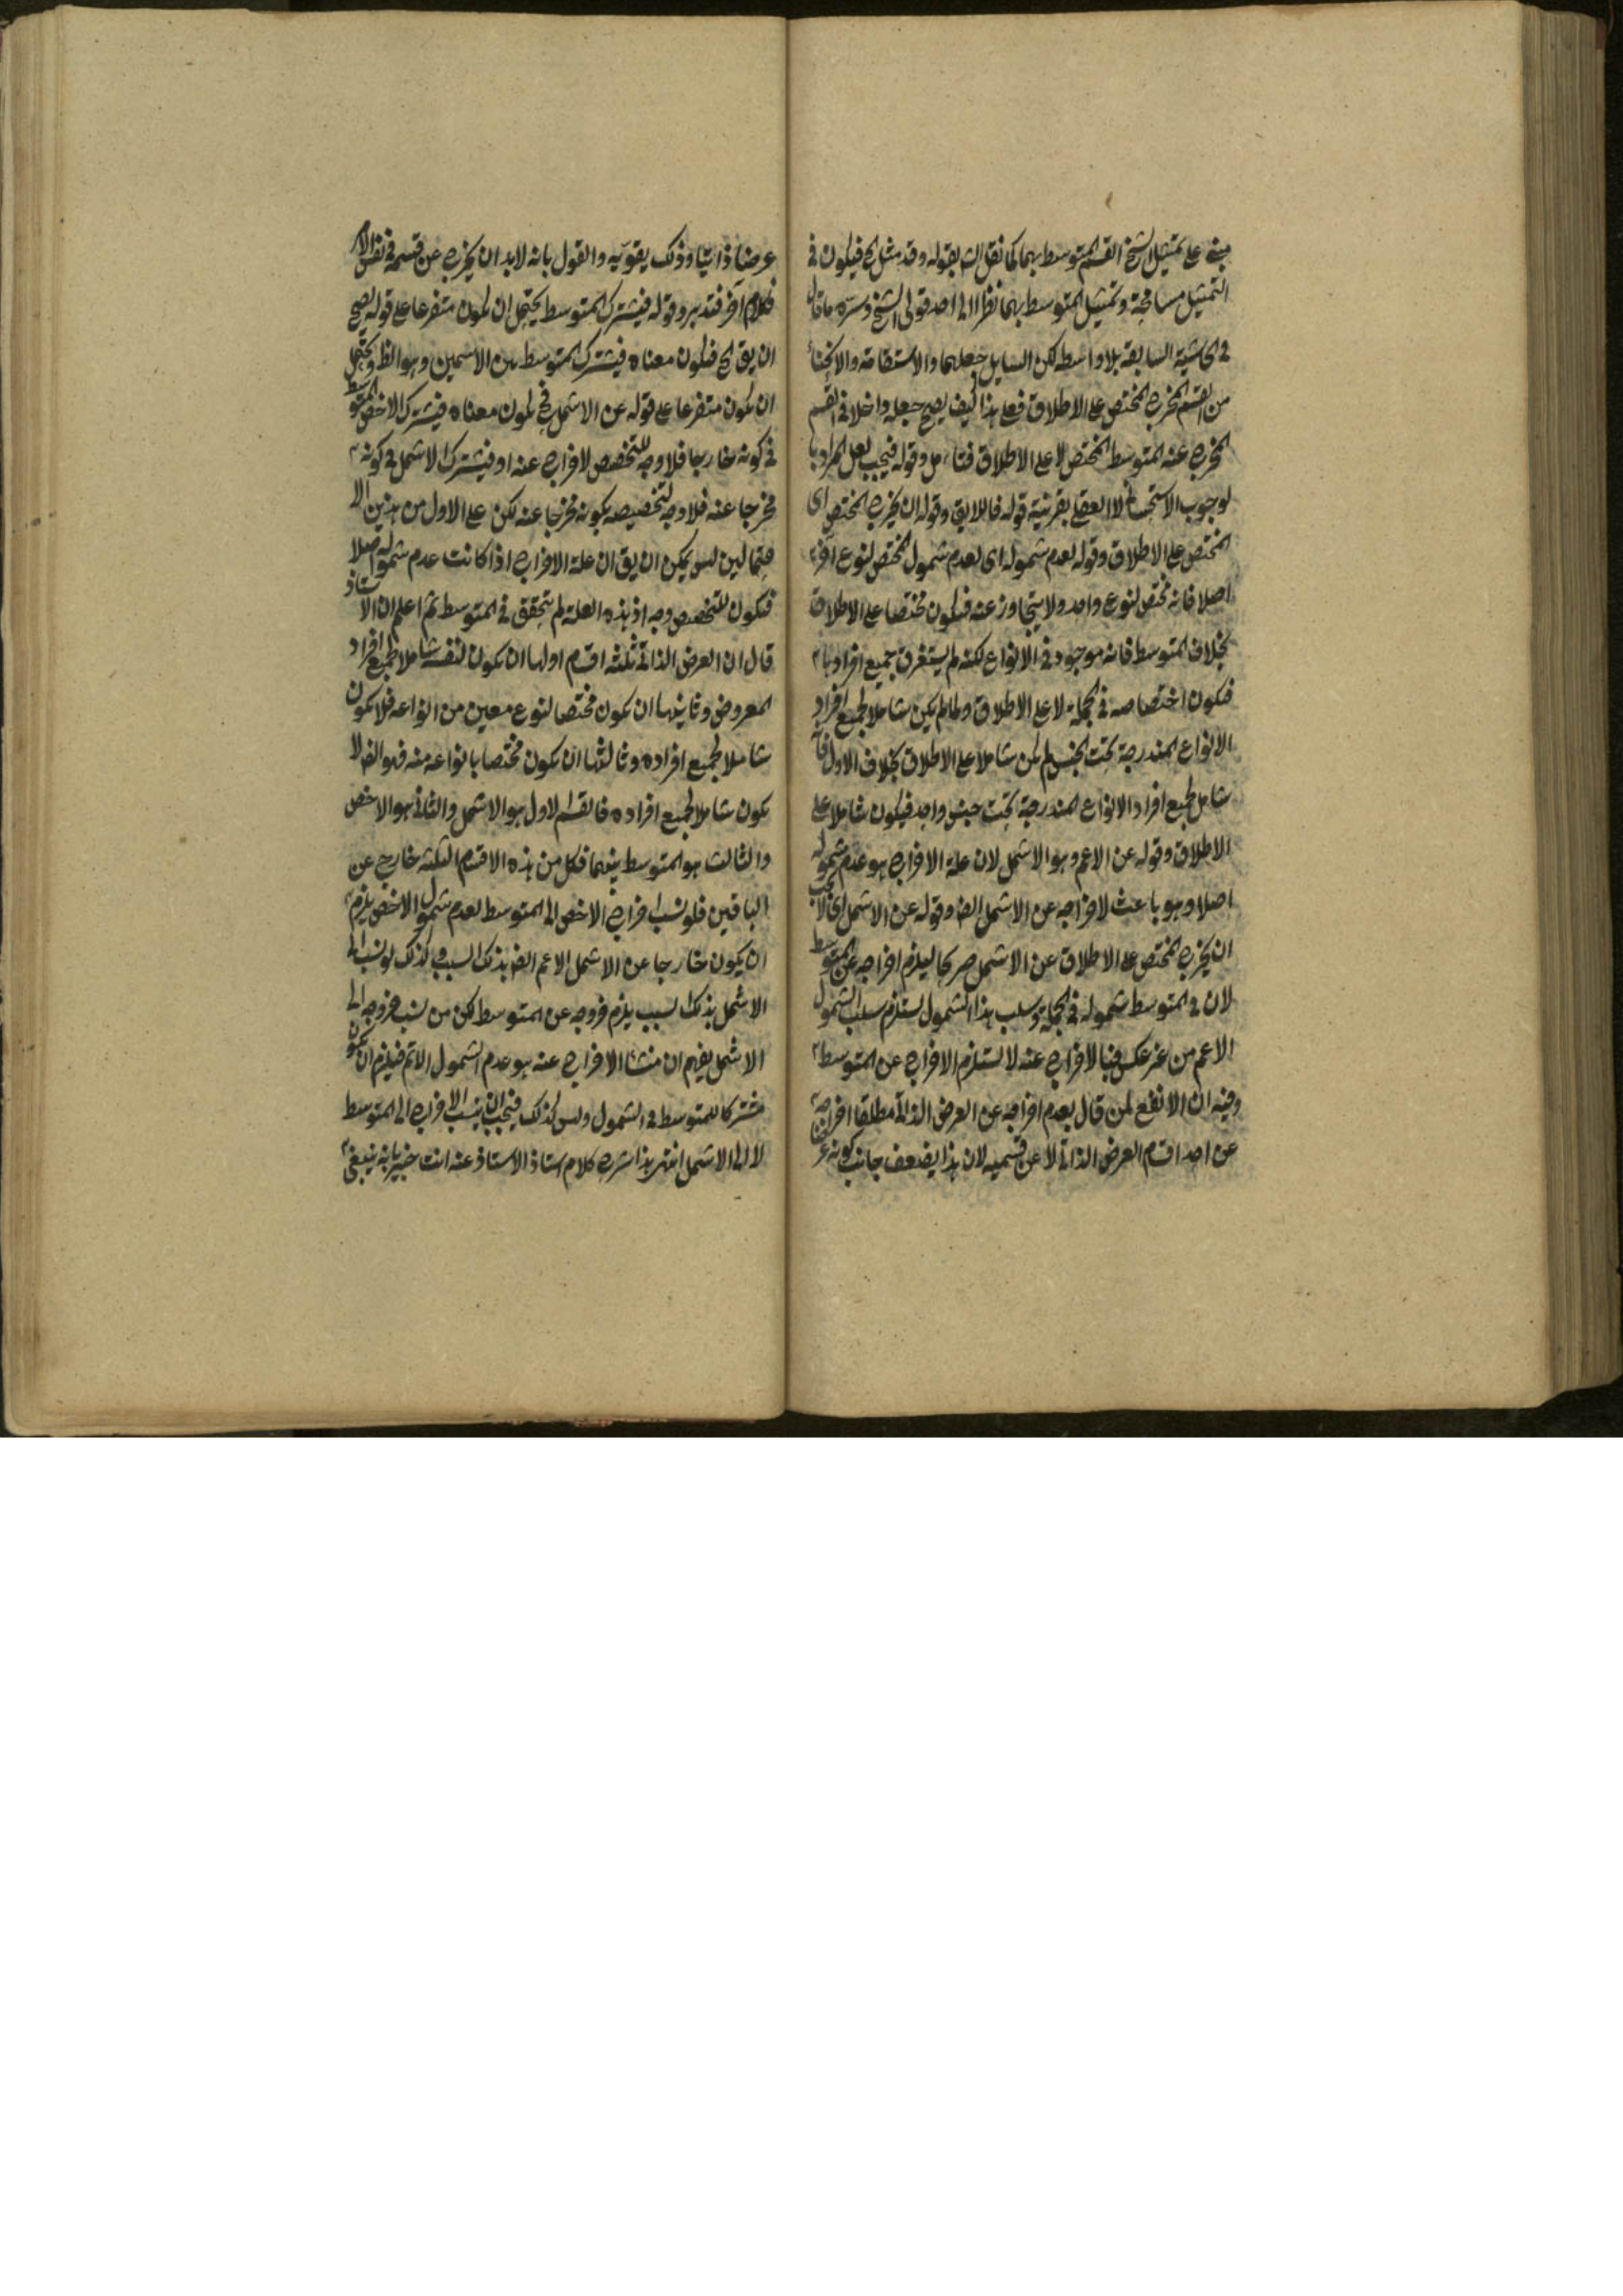 مبنى على تمثيل الشيخ القسم المتوسط بهما كما نقل الش بقوله وقد مثل الخ فيكون فى
التمثيل مسامحة وتمثيل المتوسط بهما نظرا الى احد قولى الشيخ وسره ما قال
فى الحاشية السابقة بلا واسطه لكن السايل جعلهما والاستقامة والانحناء
من القسم المخرج المختص على الاطلاق فعلى هذا كيف يصح جعله داخلا فى القسم
المخرج عنه المتوسط المختص لا على الاطلاق فتامل وقوله فيجب لعل المراد با
لوجوب الاستحسانى لا العقلى بقرينة قوله فاللايق وقوله ان يخرج المختص اى
المختص على الاطلاق وقوله لعدم شموله اى لعدم شمول المختص لنوع آخر
اصلا فانه مختص لنوع واحد ولا يتجاوز عنه فيكون مختصا على الاطلاق
بخلاف المتوسط فانه موجود فى الانواع لكنه لم يستغرق جميع افرادها
فيكون اختصاصه فى الجملة لا على الاطلاق ولما لم يكن شاملا لجميع افراد
الانواع المندرجة تحت الجنس لم يكن شاملا على الاطلاق بخلاف الاول فانه
شامل لجميع افراد الانواع المندرجة تحت جنس واحد فيكون شاملا على
الاطلاق وقوله عن الاعم وهو الاشمل لان علة الاخراج هو عدم شموله
اصلا وهو باعث لاخراجه عن الاشمل ايضا وقوله عن الاشمل اى لا يجب
ان يخرج المختص على الاطلاق عن الاشمل صريحا ليلزم اخراجه عن المتوسط
لان فى المتوسط شموله فى الجملة وسلب هذا الشمول يستلزم سلب الشمول
الاعم من غير عكس فبالاخراج عنه لا يستلزم الاخراج عن المتوسط
وفيه ان الانفع لمن قال بعدم اخراجه عن العرض الذاتى مطلقا اخراجه
عن احد اقسام العرض الذاتى لا عن قسميه لان هذا يضعف جانب كونه
عرضا ذاتيا وذلك يقويه والقول بانه لابد ان يخرج عن قسمه فى نفس الامر
كلام آخر فتدبر وقوله فيشترك المتوسط يحتمل ان يكون متفرعا على قوله يصح
ان يق الخ فيكون معناه فيشترك المتوسط بين الاسمين وهو الظ ويحتمل
ان يكون متفرعا على قوله عن الاشمل فح يكون معناه فيشترك الاخص المتوسط
فى كونه خارجا فلا وجه للتخصيص لاخراج عنه او فيشترك الاشمل فى كونه
مخرجا عنه فلا وجه لتخصيصه بكونه مخرجا عنه لكن على الاول من هذين الا
حتمالين ليس يمكن ان يق ان علة الاخراج اذا كانت عدم شموله اصلا
فيكون للتخصيص وجه اذ هذه العلة لم يتحقق فى المتوسط ثم اعلم ان الاستاذ
قال ان العرض الذاتى ثلثه اقسام اولها ان يكون لنفسه شاملا لجميع افراد
المعروض وثانيها ان يكون مختصا لنوع معين من انواعه فلا يكون
شاملا لجميع افراده وثالثها ان يكون مختصا بانواعه منه فهو ايضا لا
يكون شاملا لجميع افراده فالقسم الاول هو الاشمل والثانى هو الاخص
والثالث هو المتوسط بينهما فكل من هذه الاقسام الثلثة خارج عن
الباقين فلو نسب اخراج الاخص الى المتوسط لعدم شمول الاخص يلزم
ان يكون خارجا عن الاشمل الاعم ايضا بذلك السبب وكذلك لو نسب الى
الاشمل بذلك السبب يلزم خروجه عن المتوسط لكن من نسب خروجه الى
الاشمل يفهم ان منشاء الاخراج عنه هو عدم الشمول الاتم فيلزم ان يكون
مشتركا للمتوسط فى الشمول وليس كذلك فيجب ان ينسب الاخراج الى المتوسط
لا الى الاشمل انتهى هذا شرح كلام استاذ الاستاذ عنه انت خبير بانه ينبغى